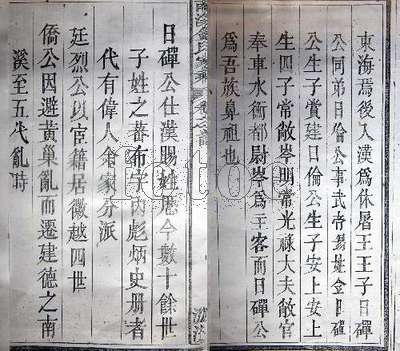 東海焉後入漢爲休屠王王子日磾
公同弟日倫公事武帝錫姓金日磾
公生子賞建日倫公生子安上安上
生四子常敵岑明常光祿大夫敵官
奉車水衡都尉岑爲主客而日磾公
爲吾族鼻祖也
日磾公仕漢賜姓歷今數十餘世
子姓之蕃布宇内彪炳史册者
代有偉人余家分派
廷烈公以宦籍居徽越四世
僑公因避黄巢亂而遷建德之南
溪至五代亂時